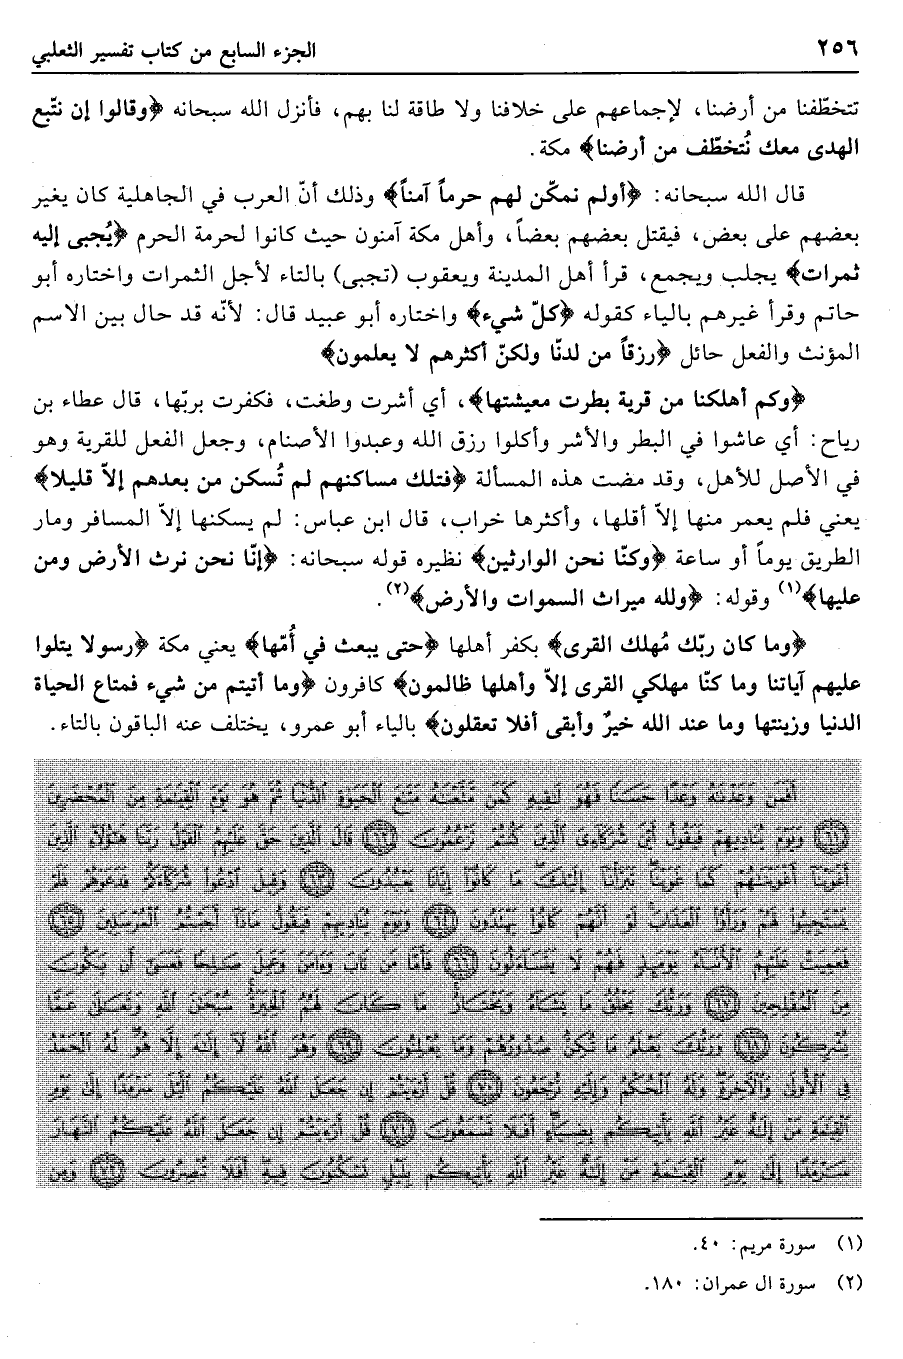 ٢٥٦ الجزء السابع من كتاب تفسير الثعلبي
تتخطّفنا من أرضنا، لإجماعهم على خلافنا ولا طاقة لنا بهم، فأنزل الله سبحانه ﴿وقالوا إن نتّبع
الهدى معك نُتخطّف من أرضنا﴾ مكة.
قال الله سبحانه: ﴿أولم نمكّن لهم حرماً آمناً﴾ وذلك أنّ العرب في الجاهلية كان يغير
بعضهم على بعض، فيقتل بعضهم بعضاً، وأهل مكة آمنون حيث كانوا لحرمة الحرم ﴿يُجبى إليه
ثمرات﴾ يجلب ويجمع، قرأ أهل المدينة ويعقوب (تجبى) بالتاء لأجل الثمرات واختاره أبو
حاتم وقرأ غيرهم بالياء كقوله ﴿كلّ شيء﴾ واختاره أبو عبيد قال: لأنّه قد حال بين الاسم
المؤنث والفعل حائل ﴿رزقاً من لدنّا ولكنّ أكثرهم لا يعلمون﴾
﴿وكم أهلكنا من قرية بطرت معيشتها﴾، أي أشرت وطغت، فكفرت بربّها، قال عطاء بن
رياح: أي عاشوا في البطر والأشر وأكلوا رزق الله وعبدوا الأصنام، وجعل الفعل للقرية وهو
في الأصل للأهل، وقد مضت هذه المسألة ﴿فتلك مساكنهم لم تُسكن من بعدهم إلاّ قليلا﴾
يعني فلم يعمر منها إلاّ أقلها، وأكثرها خراب، قال ابن عباس: لم يسكنها إلاّ المسافر ومار
الطريق يوماً أو ساعة ﴿وكنّا نحن الوارثين﴾ نظيره قوله سبحانه: ﴿إنّا نحن نرث الأرض ومن
عليها﴾(١) وقوله: ﴿ولله ميراث السموات والأرض﴾(٢).
﴿وما كان ربّك مُهلك القرى﴾ بكفر أهلها ﴿حتى يبعث في أُمّها﴾ يعني مكة ﴿رسولا يتلوا
عليهم آياتنا وما كنّا مهلكي القرى إلاّ وأهلها ظالمون﴾ كافرون ﴿وما أتيتم من شيء فمتاع الحياة
الدنيا وزينتها وما عند الله خيرٌ وأبقى أفلا تعقلون﴾ بالياء أبو عمرو، يختلف عنه الباقون بالتاء.
أَفَمَن وَعَدْنَٰهُ وَعْدًا حَسَنًا فَهُوَ لَٰقِيهِ كَمَن مَّتَّعْنَٰهُ مَتَٰعَ ٱلْحَيَوٰةِ ٱلدُّنْيَا ثُمَّ هُوَ يَوْمَ ٱلْقِيَٰمَةِ مِنَ ٱلْمُحْضَرِينَ
﴿٦١﴾ وَيَوْمَ يُنَادِيهِمْ فَيَقُولُ أَيْنَ شُرَكَآءِىَ ٱلَّذِينَ كُنتُمْ تَزْعُمُونَ ﴿٦٢﴾ قَالَ ٱلَّذِينَ حَقَّ عَلَيْهِمُ ٱلْقَوْلُ رَبَّنَا هَٰٓؤُلَآءِ ٱلَّذِينَ
أَغْوَيْنَآ أَغْوَيْنَٰهُمْ كَمَا غَوَيْنَا تَبَرَّأْنَآ إِلَيْكَ مَا كَانُوٓا۟ إِيَّانَا يَعْبُدُونَ ﴿٦٣﴾ وَقِيلَ ٱدْعُوا۟ شُرَكَآءَكُمْ فَدَعَوْهُمْ فَلَمْ
يَسْتَجِيبُوا۟ لَهُمْ وَرَأَوُا۟ ٱلْعَذَابَ لَوْ أَنَّهُمْ كَانُوا۟ يَهْتَدُونَ ﴿٦٤﴾ وَيَوْمَ يُنَادِيهِمْ فَيَقُولُ مَاذَآ أَجَبْتُمُ ٱلْمُرْسَلِينَ ﴿٦٥﴾
فَعَمِيَتْ عَلَيْهِمُ ٱلْأَنۢبَآءُ يَوْمَئِذٍ فَهُمْ لَا يَتَسَآءَلُونَ ﴿٦٦﴾ فَأَمَّا مَن تَابَ وَءَامَنَ وَعَمِلَ صَٰلِحًا فَعَسَىٰٓ أَن يَكُونَ
مِنَ ٱلْمُفْلِحِينَ ﴿٦٧﴾ وَرَبُّكَ يَخْلُقُ مَا يَشَآءُ وَيَخْتَارُ مَا كَانَ لَهُمُ ٱلْخِيَرَةُ سُبْحَٰنَ ٱللَّهِ وَتَعَٰلَىٰ عَمَّا
يُشْرِكُونَ ﴿٦٨﴾ وَرَبُّكَ يَعْلَمُ مَا تُكِنُّ صُدُورُهُمْ وَمَا يُعْلِنُونَ ﴿٦٩﴾ وَهُوَ ٱللَّهُ لَآ إِلَٰهَ إِلَّا هُوَ لَهُ ٱلْحَمْدُ
فِى ٱلْأُولَىٰ وَٱلْءَاخِرَةِ وَلَهُ ٱلْحُكْمُ وَإِلَيْهِ تُرْجَعُونَ ﴿٧٠﴾ قُلْ أَرَءَيْتُمْ إِن جَعَلَ ٱللَّهُ عَلَيْكُمُ ٱلَّيْلَ سَرْمَدًا إِلَىٰ يَوْمِ
ٱلْقِيَٰمَةِ مَنْ إِلَٰهٌ غَيْرُ ٱللَّهِ يَأْتِيكُم بِضِيَآءٍ أَفَلَا تَسْمَعُونَ ﴿٧١﴾ قُلْ أَرَءَيْتُمْ إِن جَعَلَ ٱللَّهُ عَلَيْكُمُ ٱلنَّهَارَ
سَرْمَدًا إِلَىٰ يَوْمِ ٱلْقِيَٰمَةِ مَنْ إِلَٰهٌ غَيْرُ ٱللَّهِ يَأْتِيكُم بِلَيْلٍ تَسْكُنُونَ فِيهِ أَفَلَا تُبْصِرُونَ ﴿٧٢﴾ وَمِن
(١) سورة مريم: ٤٠.
(٢) سورة ال عمران: ١٨٠.